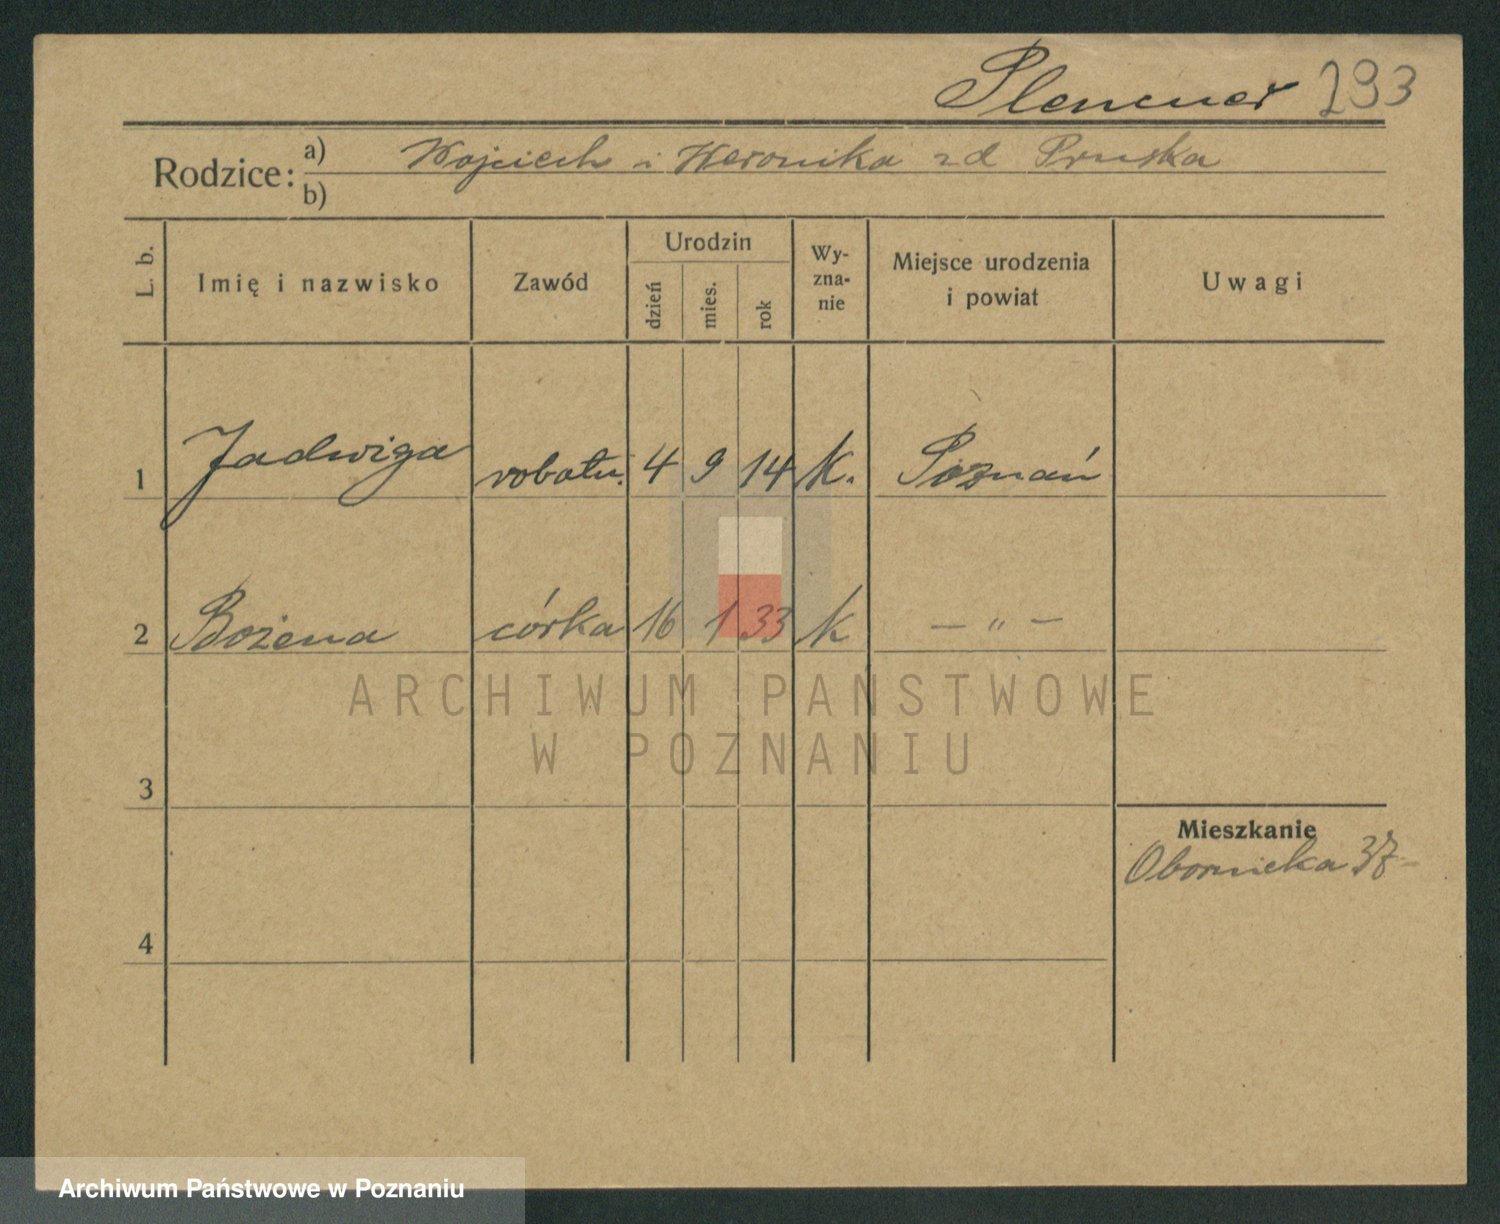 Plencner 293
Rodzice: a) Wojciech i Weronika zd Pruska
b)
L. b. Imię i nazwisko Zawód Urodzin dzień mies. rok Wyzna-nie Miejsce urodzenia i powiat Uwagi
1 Jadwiga robotn. 4 9 14 K. Poznań
2 Bożena córka 16 1 33 K — „ —
ARCHIWUM PAŃSTWOWE
W POZNANIU
3
Mieszkanie
Obornicka 37
4
Archiwum Państwowe w Poznaniu